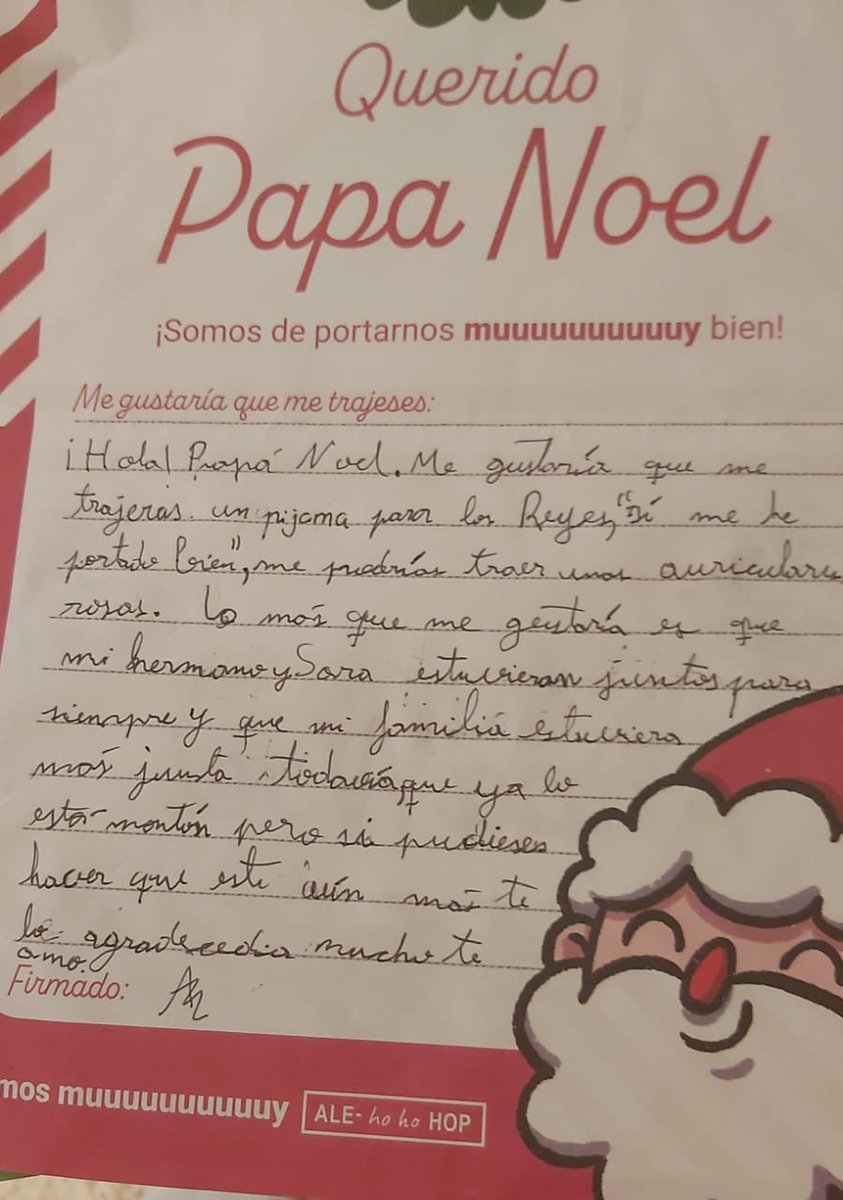 Querido
Papa Noel
¡Somos de portarnos muuuuuuuuuuy bien!
Me gustaría que me trajeses:
¡Hola! Papá Noel. Me gustaría que me
trajeras un pijama para los Reyes, "si me he
portado bien", me podrías traer unos auriculares
rosas. Lo más que me gustaría es que
mi hermano y Sara estuvieran juntos para
siempre y que mi familiá estuviera
más junta todavía, que ya lo
está montón pero si pudieses
hacer que esté aún más te
lo agradecedia mucho te
amo.
Firmado:
mos muuuuuuuuuuy ALE- ho ho HOP